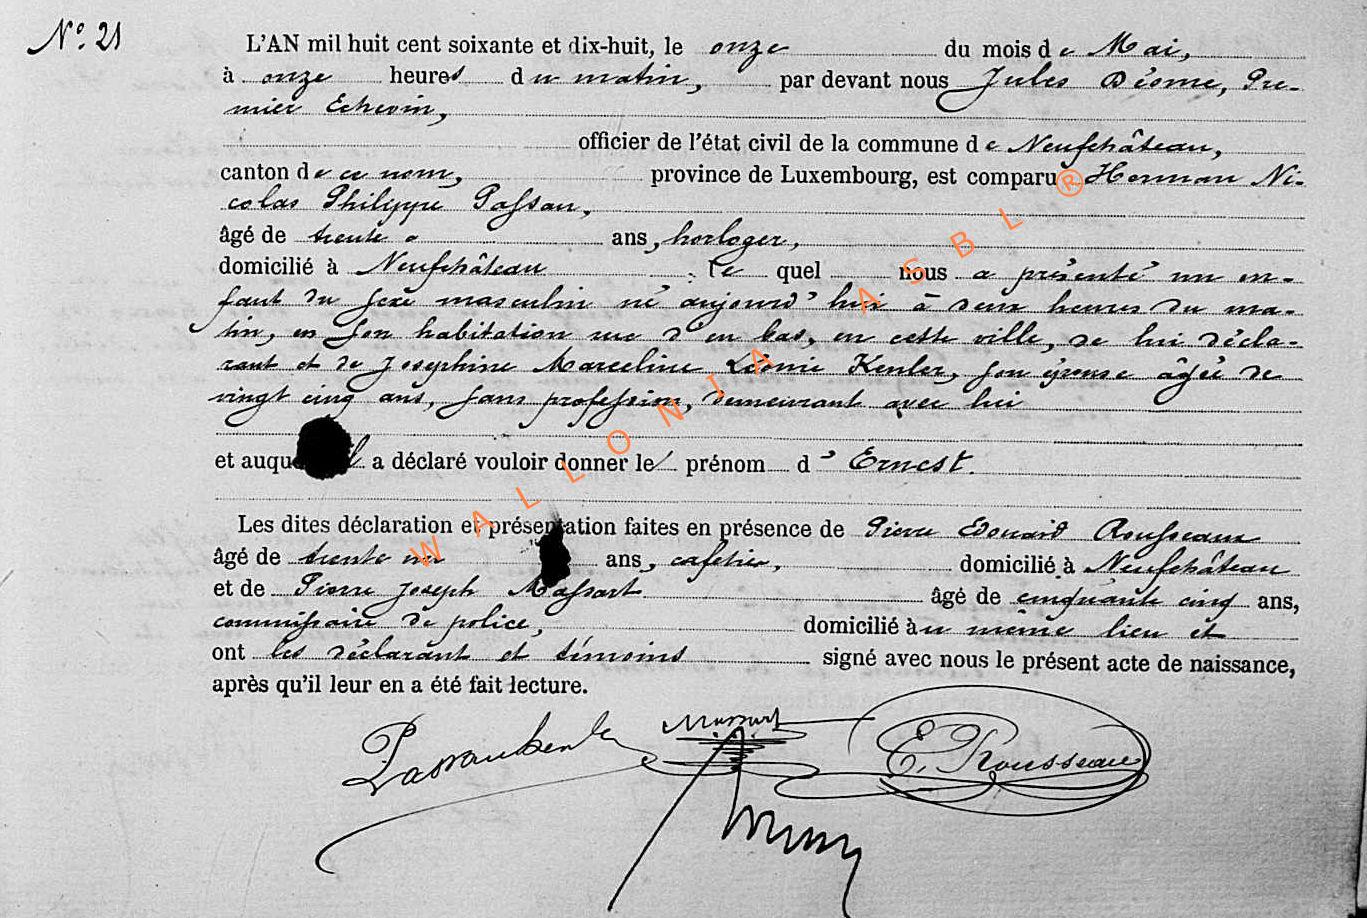 N° 21
L'AN mil huit cent soixante et dix-huit, le onze du mois de Mai,
à onze heures du matin, par devant nous Jules Déome, Pre-
mier Echevin,
officier de l'état civil de la commune de Neufchâteau,
canton de ce nom, province de Luxembourg, est comparu Herman Ni-
colas Philippe Passau,
âgé de trente ans, horloger,
domicilié à Neufchâteau ; le quel nous a présenté un en-
fant du sexe masculin né aujourd'hui à deux heures du ma-
tin, en son habitation rue d'en bas, en cette ville, de lui décla-
rant et de Joséphine Marceline Léonie Kenler, son épouse âgée de
vingt cinq ans, sans profession, demeurant avec lui
et auquel il a déclaré vouloir donner le prénom d'Ernest.
Les dites déclaration et présentation faites en présence de Pierre Edouard Rousseaux
âgé de trente un ans, cafetier, domicilié à Neufchâteau
et de Pierre Joseph Massart âgé de cinquante cinq ans,
commissaire de police, domicilié au même lieu et
ont les déclarant et témoins signé avec nous le présent acte de naissance,
après qu'il leur en a été fait lecture.
Passau Kenler Massart E. Rousseaux
WALLONIA ASBL ®